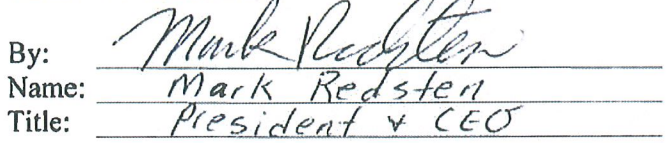 By: Mark Redsten
Name: Mark Redsten
Title: President & CEO